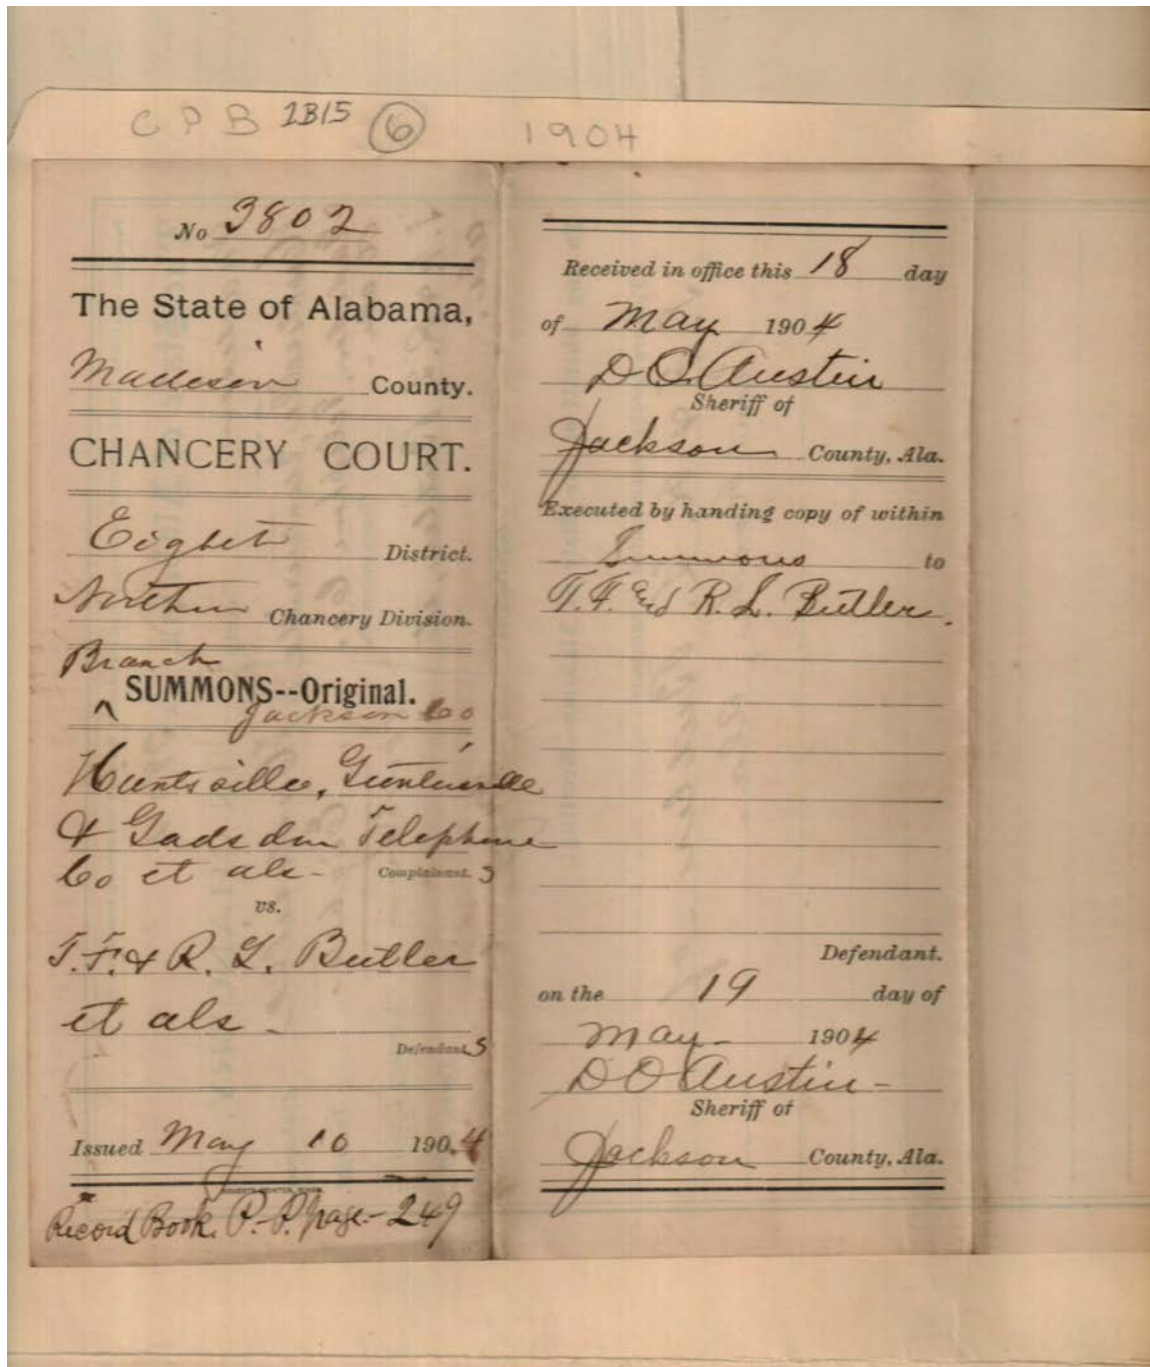 CPB 2B15 6 1904
No 3802
The State of Alabama,
Madison County.
CHANCERY COURT.
Eighth District.
Northern Chancery Division.
Branch
^ SUMMONS--Original.
Jackson Co
Huntsville, Guntersville
& Gadsden Telephone
Co et als - Complainant.s
vs.
T. F. & R. L. Butler
et als -
Defendant.s
Issued May 10 1904
Record Book. P.-P. page - 249
Received in office this 18 day
of May 1904
D O Austin
Sheriff of
Jackson County, Ala.
Executed by handing copy of within
Summons to
T. F. and R. L. Butler.
Defendant.
on the 19 day of
May - 1904
D O Austin -
Sheriff of
Jackson County, Ala.